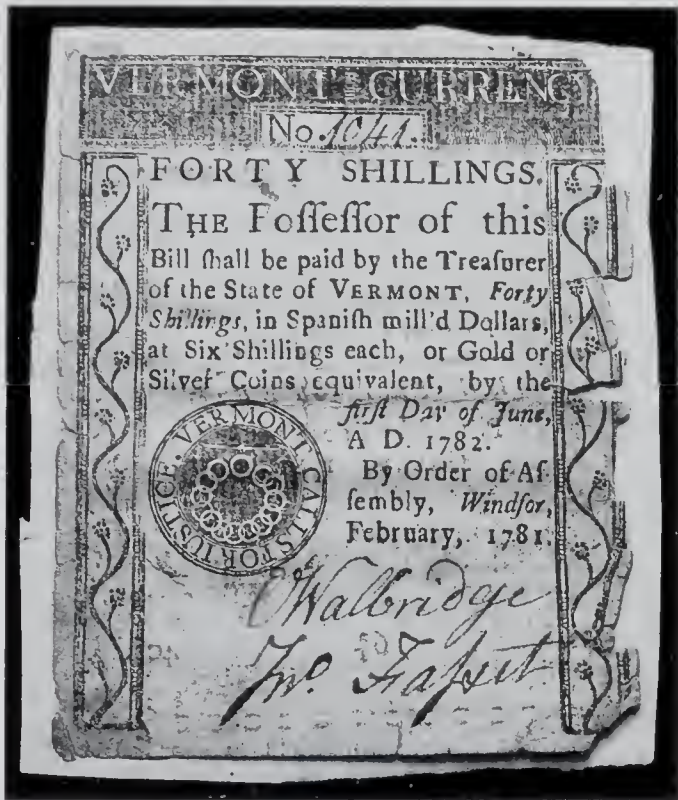 VERMONT CURRENCY
No 1041.
FORTY SHILLINGS.
THE Poſſeſſor of this
Bill ſhall be paid by the Treaſurer
of the State of VERMONT, Forty
Shillings, in Spaniſh mill'd Dollars,
at Six Shillings each, or Gold or
Silver Coins equivalent, by the
firſt Day of June,
A D. 1782.
By Order of Aſ
ſembly, Windſor,
February, 1781.
VERMONT CALLS FOR JUSTICE.
Walbridge
Jno. Faſset